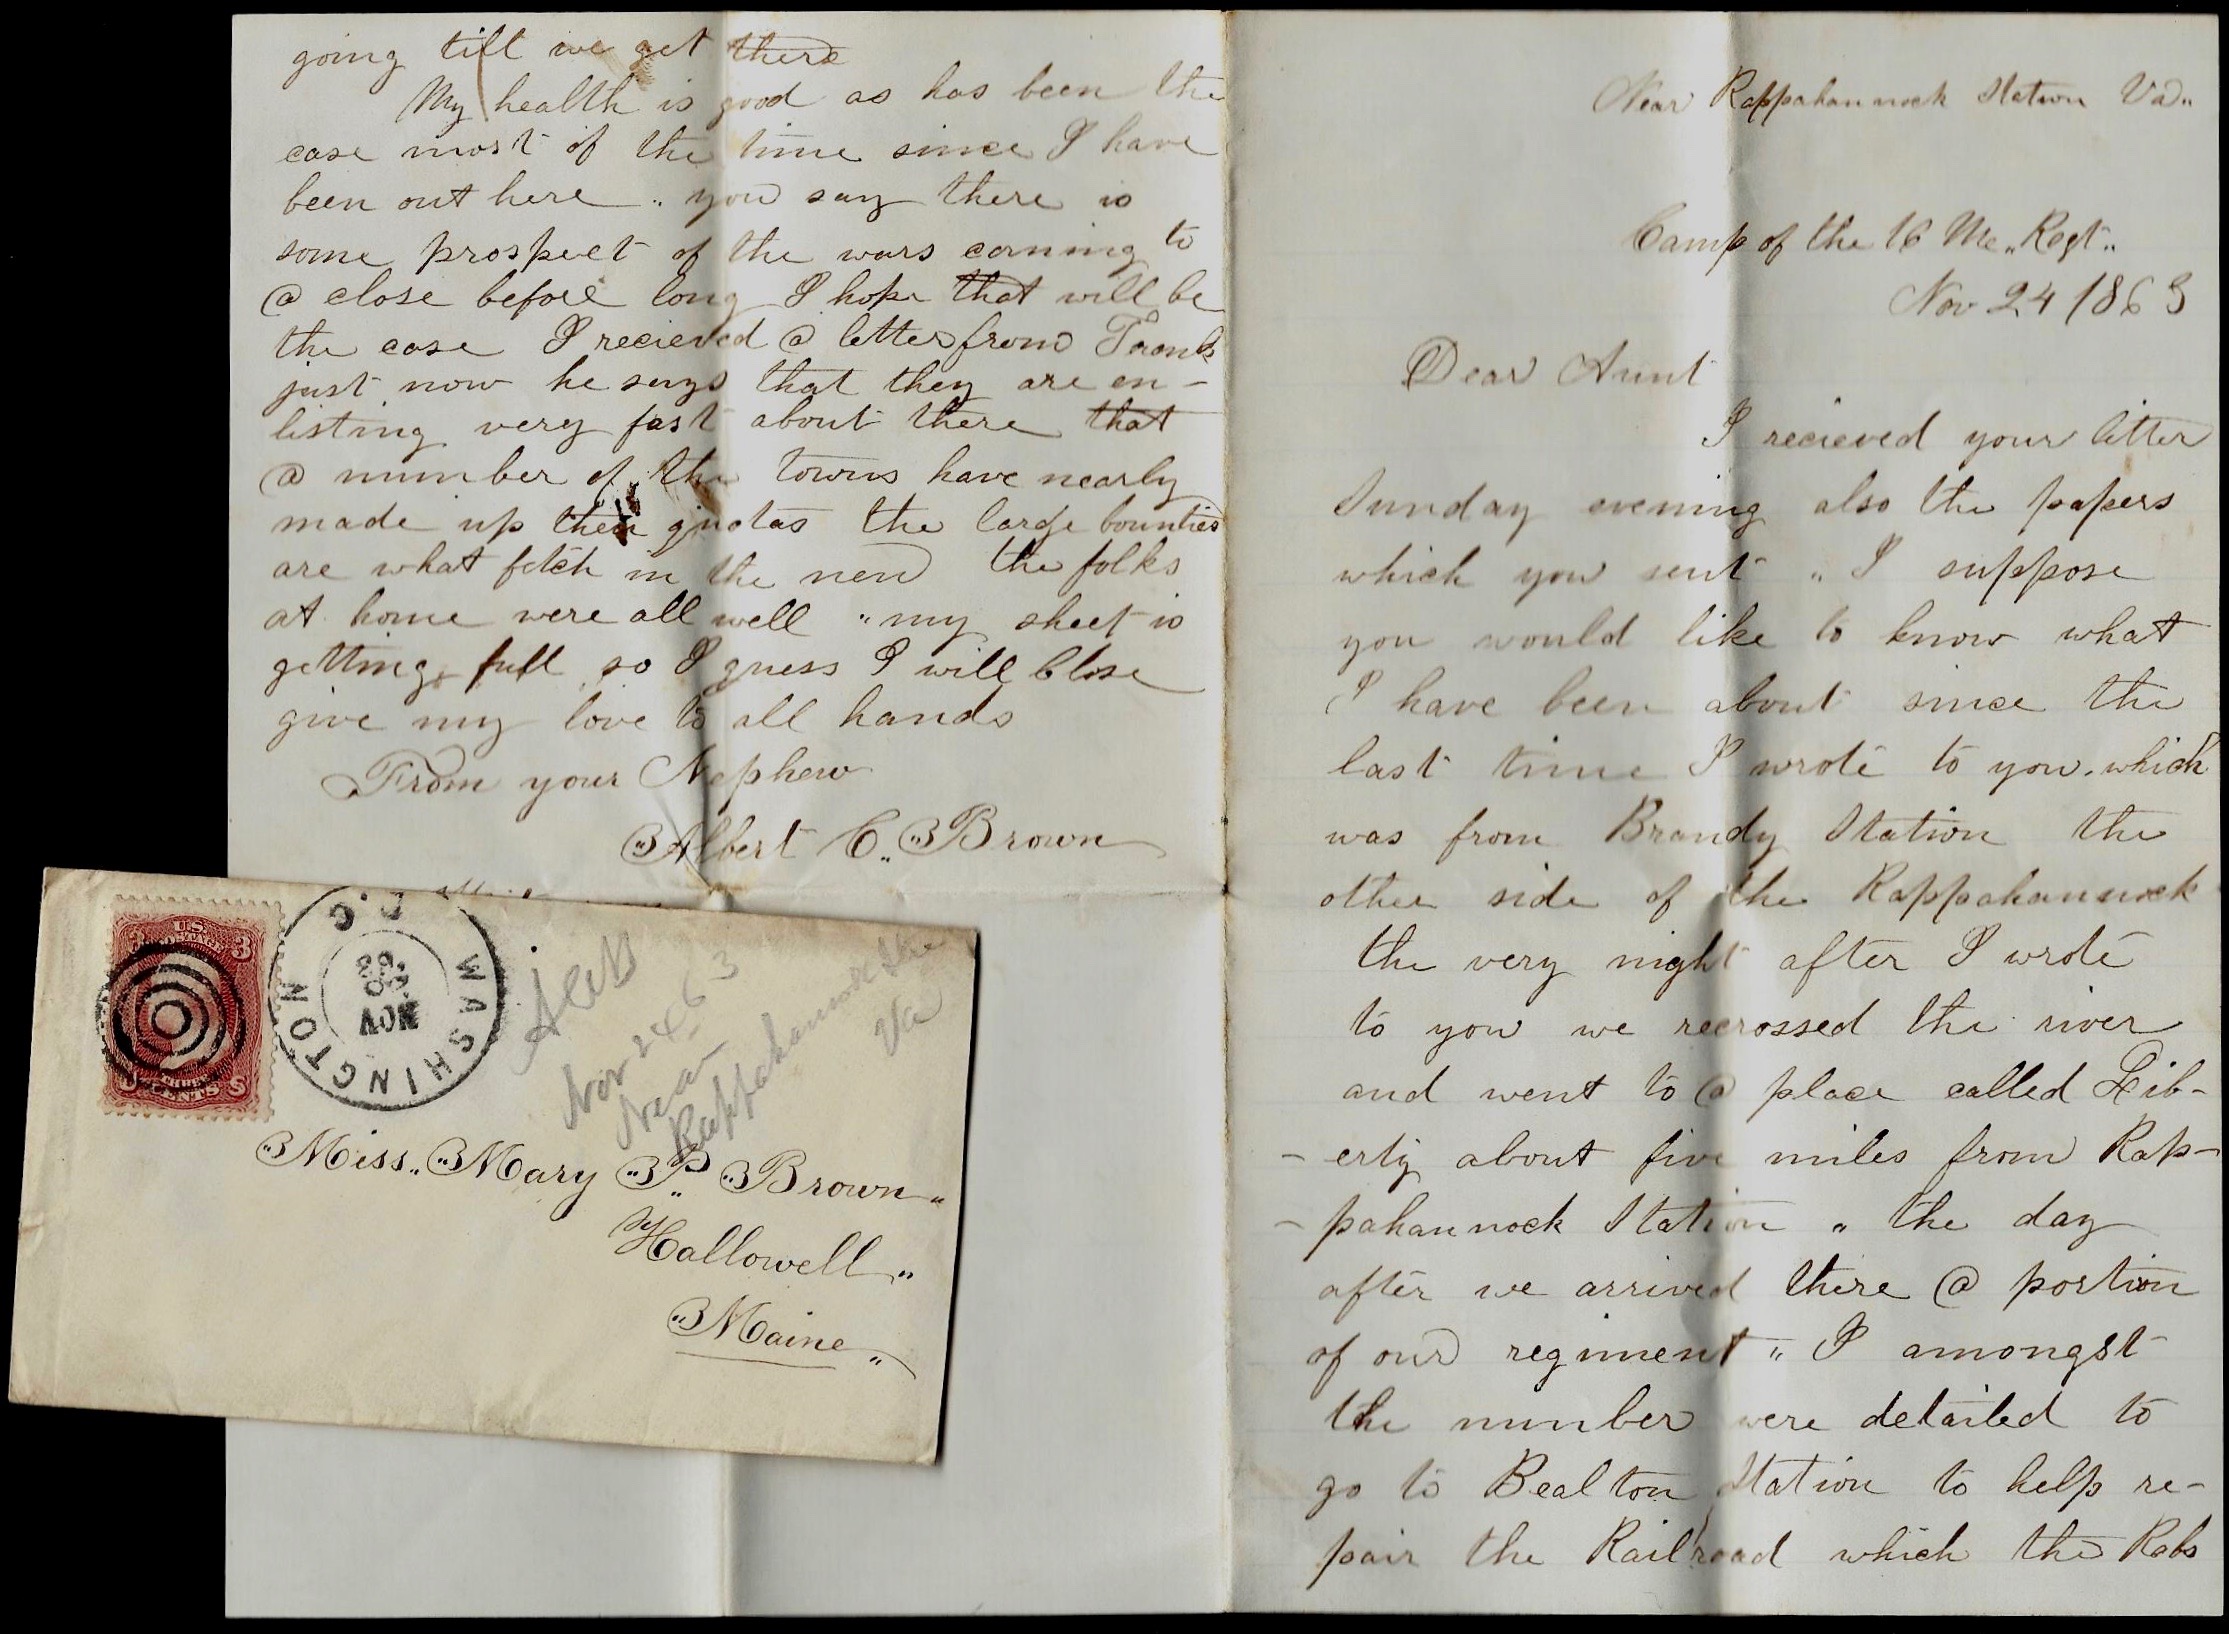 Near Rappahannock Station Va"
Camp of the 16 Me" Regt"
Nov 24 1863
Dear Aunt
I recieved your letter
Sunday evening also the papers
which you sent " I suppose
you would like to know what
I have been about since the
last time I wrote to you. which
was from Brandy Station the
other side of the Rappahannock
the very night after I wrote
to you we recrossed the river
and went to @ place called Lib-
- erty about five miles from Rap-
- pahannock Station " the day
after we arrived there @ portion
of our regiment " I amongst
the number were detailed to
go to Bealton Station to help re-
pair the Railroad which the Rebs
going till we get there
My health is good as has been the
case most of the time since I have
been out here " you say there is
some prospect of the wars coming to
@ close before long I hope that will be
the case I recieved @ letter from Frank
just now he says that they are en-
listing very fast about there that
@ number of the towns have nearly
made up their quotas the large bounties
are what fetch in the men the folks
at home were all well " my sheet is
getting full so I guess I will Close
give my love to all hands
From your Nephew
Albert C. Brown
U.S.
3
3
THREE
CENTS
WASHINGTON
D.C.
NOV
63
Nov 24 63
Near
Rappahannock Sta
Va
Miss" Mary P" Brown"
Hallowell"
Maine"